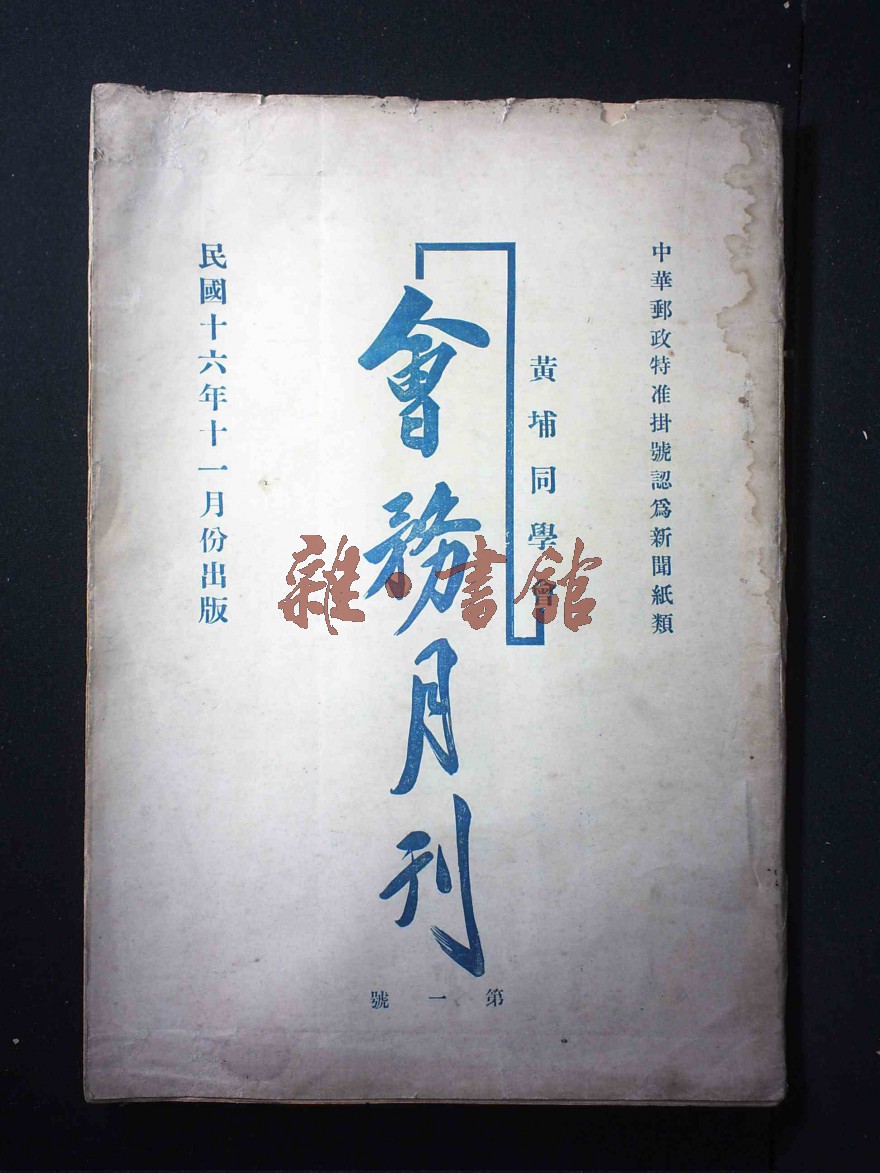 中華郵政特准掛號認爲新聞紙類
黃埔同學會
會務月刊
第一號
民國十六年十一月份出版
雜·書館